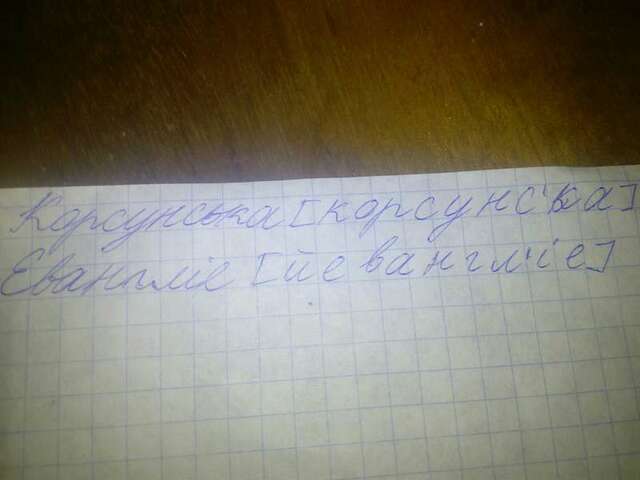 Корсунська [корсунс'ка]
Євангліє [йевангл'іе]